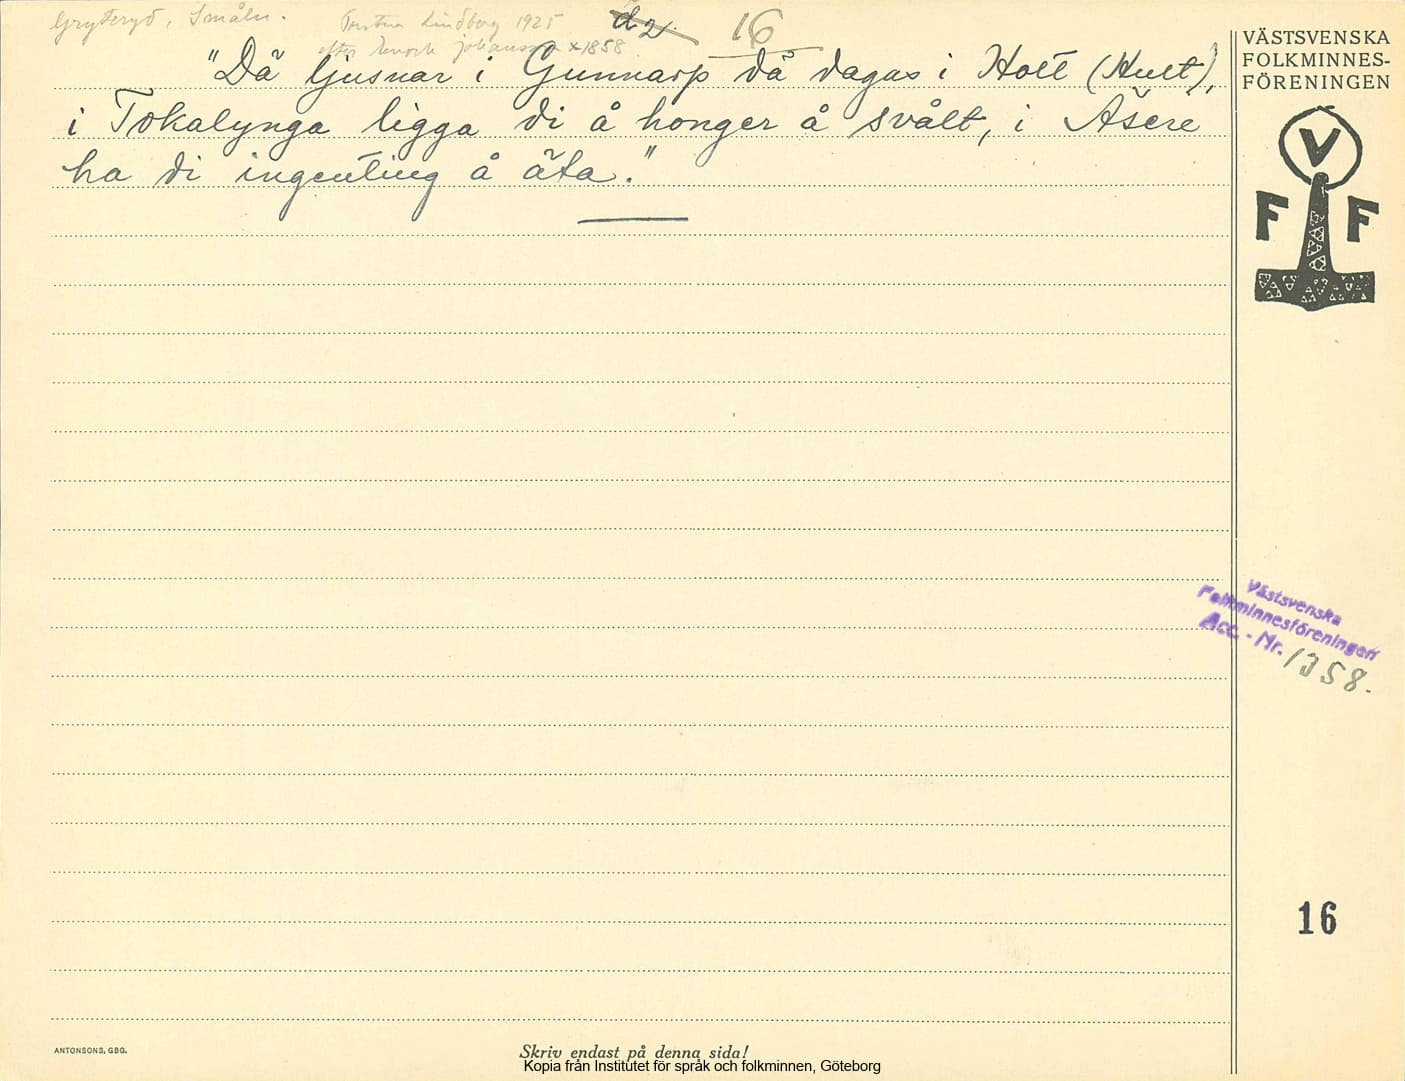 Gryteryd, Småln.
Lindborg 1925
16
efter Enock Johansson x 1858
"Dä ljusnar i Gunnarp dä dagas i Holt (Hult),
i Tokalynga ligga di å honger å svält, i Äsere
ha di ingenting å äta."
VÄSTSVENSKA
FOLKMINNES-
FÖRENINGEN
V
F F
Västsvenska
Folkminnesföreningen
Acc. - Nr. 1358.
16
ANTONSONS, GBG.
Skriv endast på denna sida!
Kopia från Institutet för språk och folkminnen, Göteborg